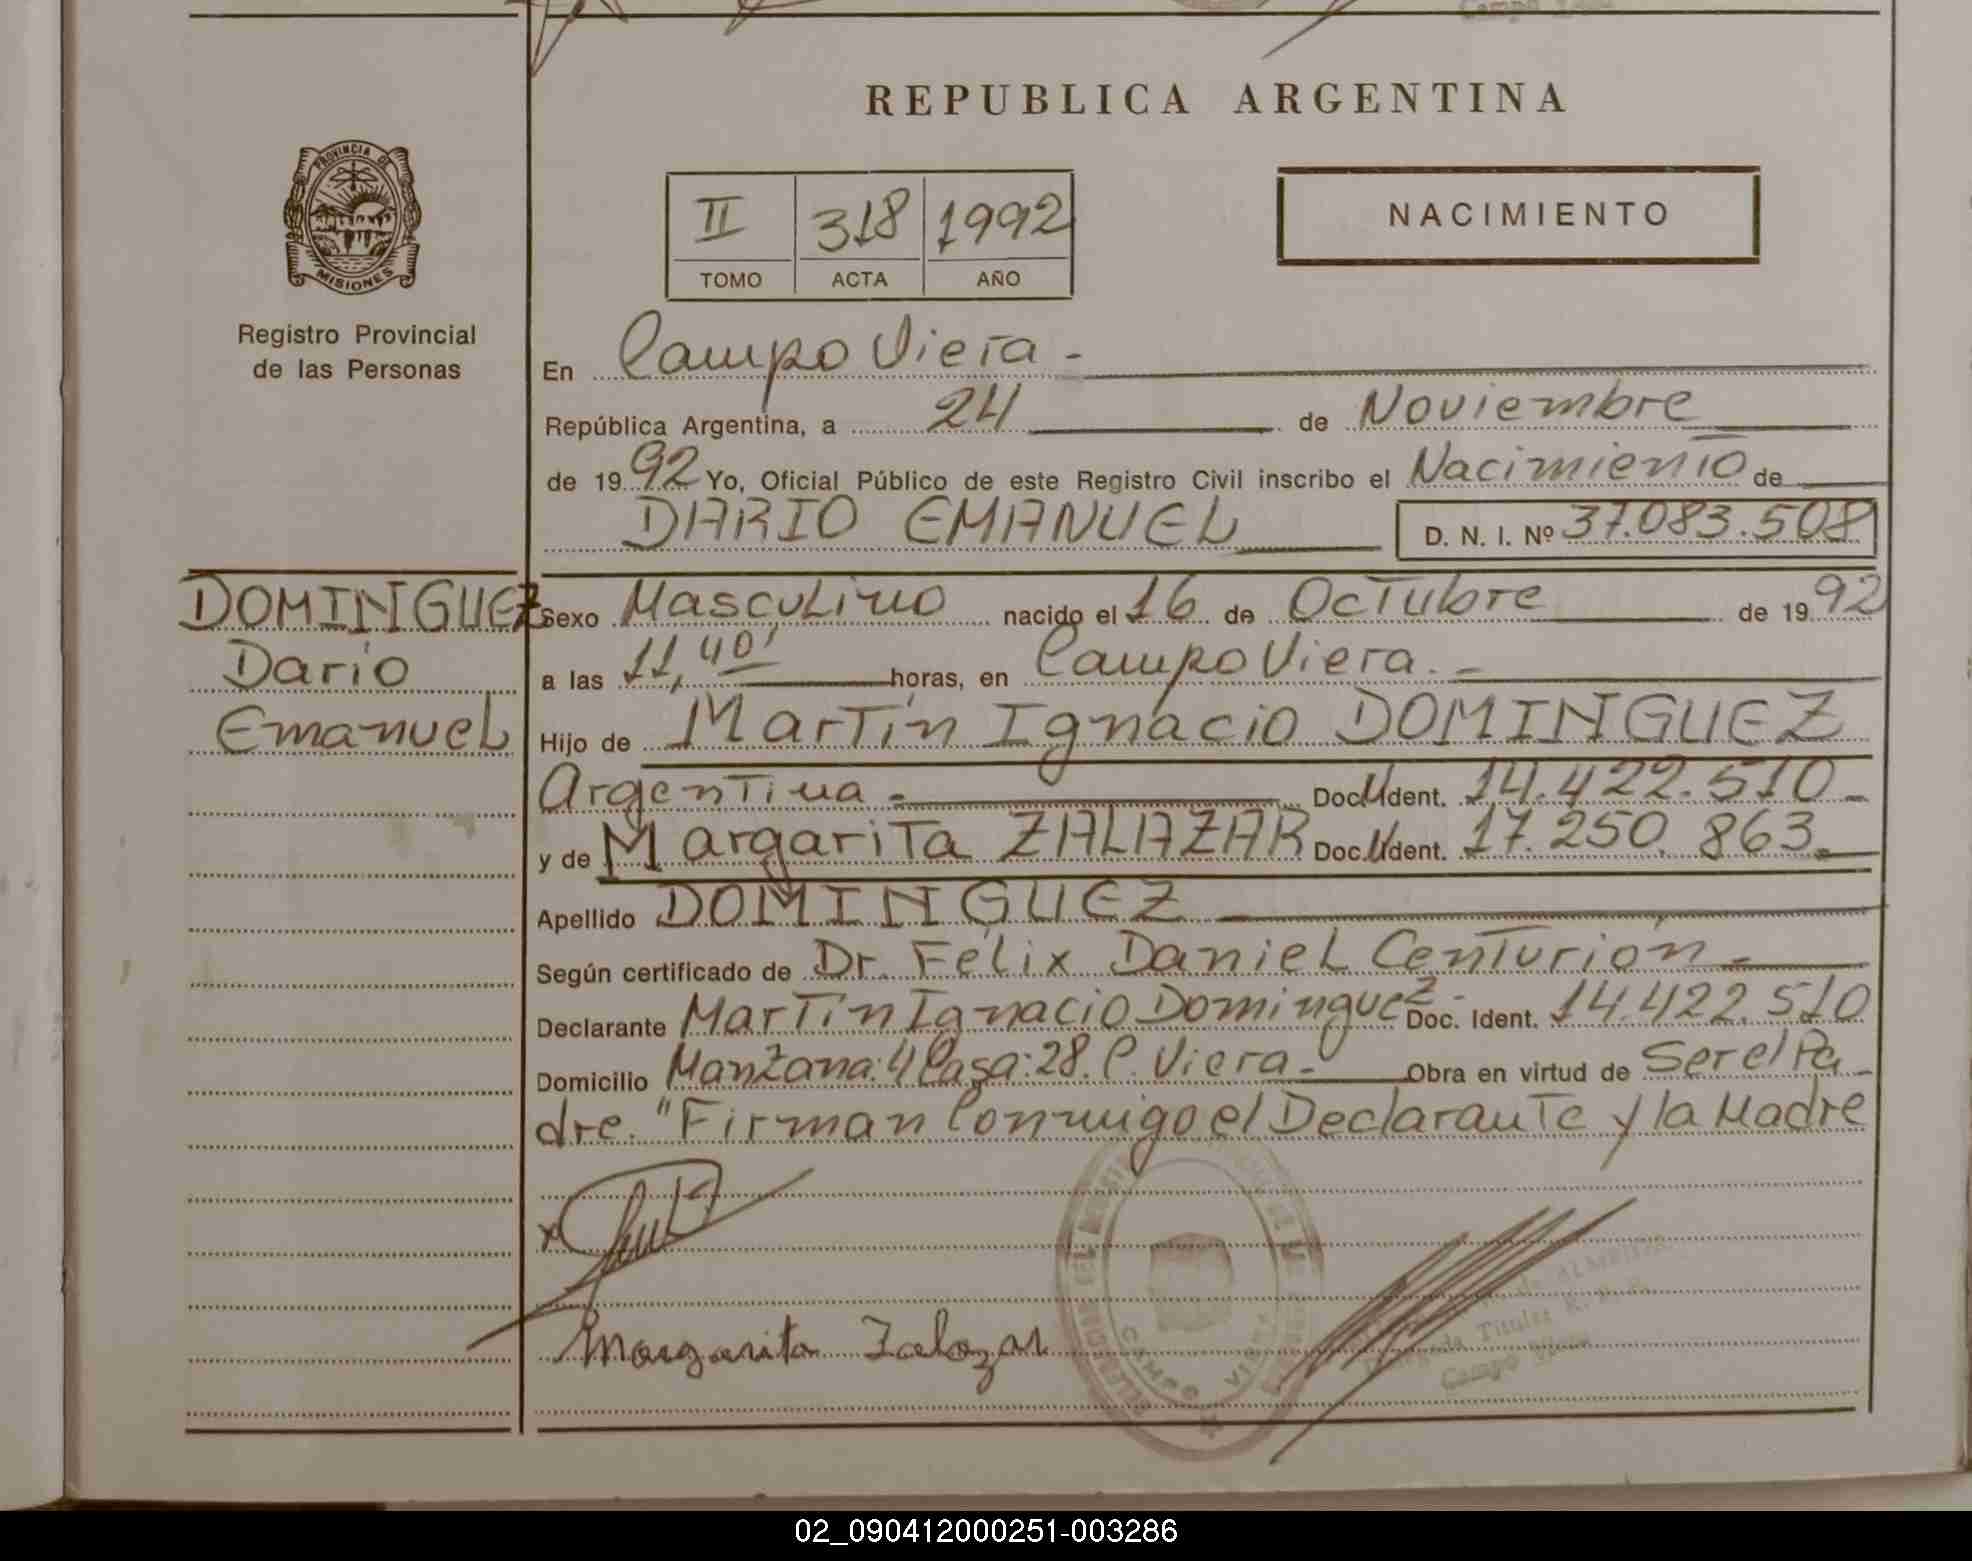 REPUBLICA ARGENTINA
PROVINCIA DE
MISIONES
Registro Provincial
de las Personas
II 318 1992
TOMO ACTA AÑO
NACIMIENTO
En Campo Viera -
República Argentina, a 24 de Noviembre
de 1992 Yo, Oficial Público de este Registro Civil inscribo el Nacimiento de
DARIO EMANUEL D. N. I. Nº 37.083.508
DOMINGUEZ
Dario
Emanuel
Sexo Masculino nacido el 16 de Octubre de 1992
a las 11,40' horas, en Campo Viera. -
Hijo de Martín Ignacio DOMINGUEZ
Argentina - Doc. Ident. 14.422.510 -
y de Margarita ZALAZAR Doc. Ident. 17.250.863.
Apellido DOMINGUEZ
Según certificado de Dr. Félix Daniel Centurión -
Declarante Martín Ignacio Dominguez - Doc. Ident. 14.422.510
Domicilio Manzana: 4 Casa: 28. C. Viera. - Obra en virtud de Ser el Pa
dre. "Firman Conmigo el Declarante y la Madre
Margarita Zalazar
CAMPO VIERA
Titular
Campo Viera
02_090412000251-003286